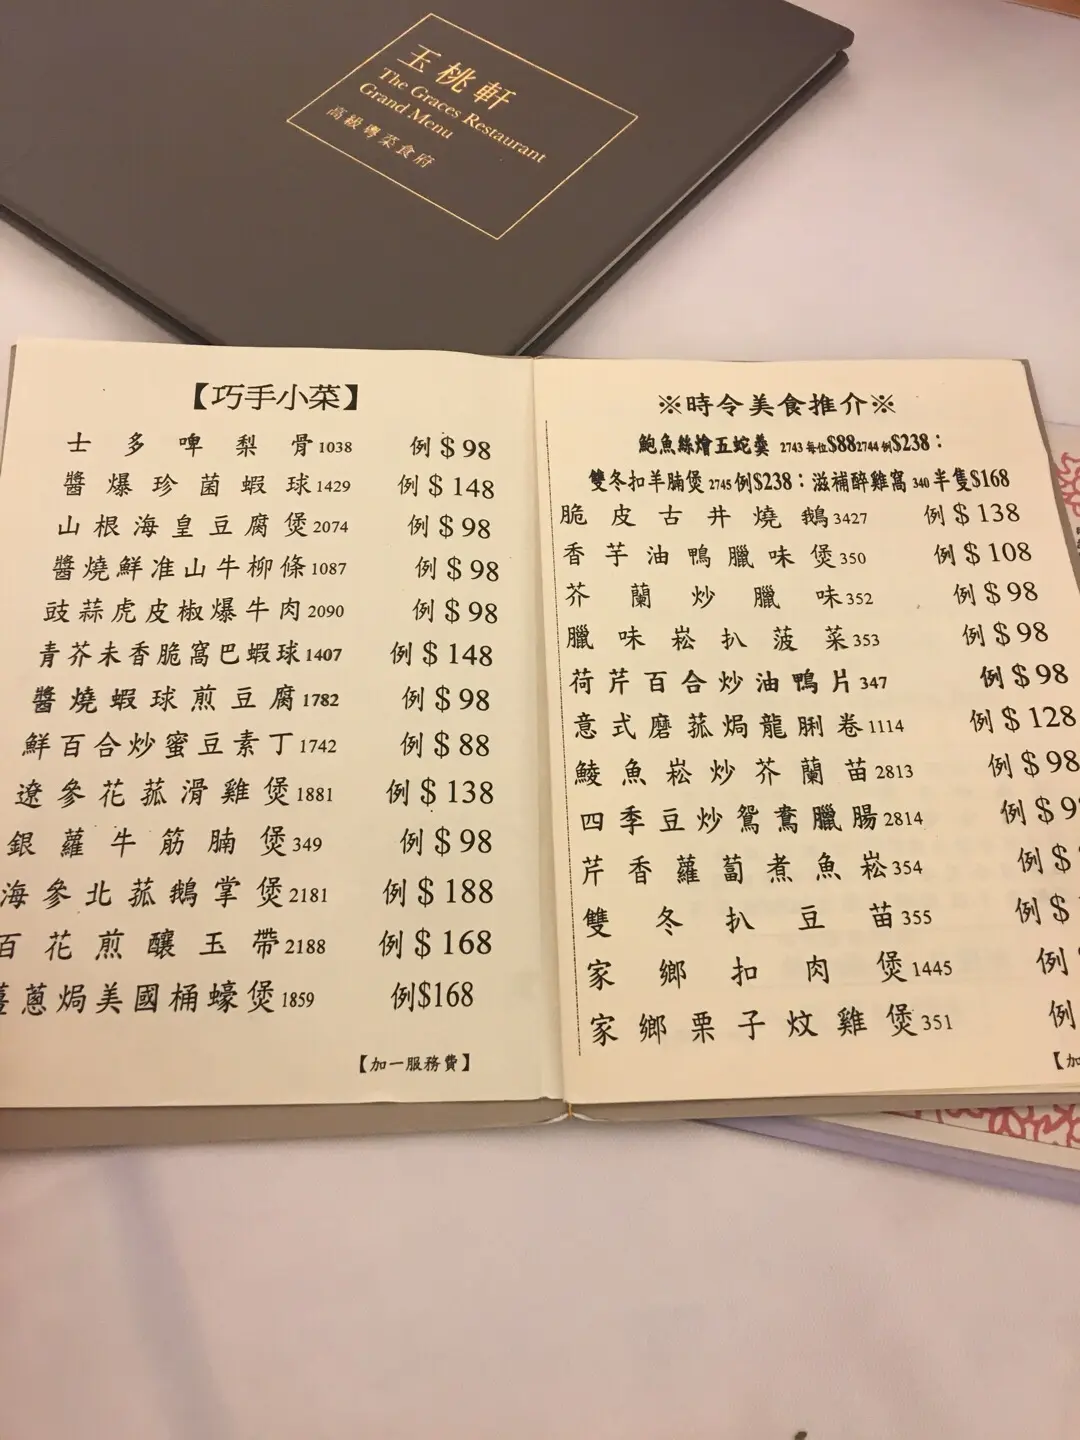 玉桃軒
The Graces Restaurant
Grand Menu
高級粵菜食府
【巧手小菜】
士多啤梨骨1038 例$98
醬爆珍菌蝦球1429 例$148
山根海皇豆腐煲2074 例$98
醬燒鮮准山牛柳條1087 例$98
豉蒜虎皮椒爆牛肉2090 例$98
青芥末香脆窩巴蝦球1407 例$148
醬燒蝦球煎豆腐1782 例$98
鮮百合炒蜜豆素丁1742 例$88
遼參花菰滑雞煲1881 例$138
銀蘿牛筋腩煲349 例$98
海參北菰鵝掌煲2181 例$188
百花煎釀玉帶2188 例$168
蔥焗美國桶蠔煲1859 例$168
【加一服務費】
※時令美食推介※
鮑魚絲燴五蛇羹 2743 每位$88 2744 例$238：
雙冬扣羊腩煲 2745 例$238：滋補醉雞窩 340 半隻$168
脆皮古井燒鵝3427 例$138
香芋油鴨臘味煲350 例$108
芥蘭炒臘味352 例$98
臘味崧扒菠菜353 例$98
荷芹百合炒油鴨片347 例$98
意式磨菰焗龍脷卷1114 例$128
鯪魚崧炒芥蘭苗2813 例$98
四季豆炒鴛鴦臘腸2814 例$9
芹香蘿蔔煮魚崧354 例$
雙冬扒豆苗355 例$
家鄉扣肉煲1445 例
家鄉栗子炆雞煲351 例
【加